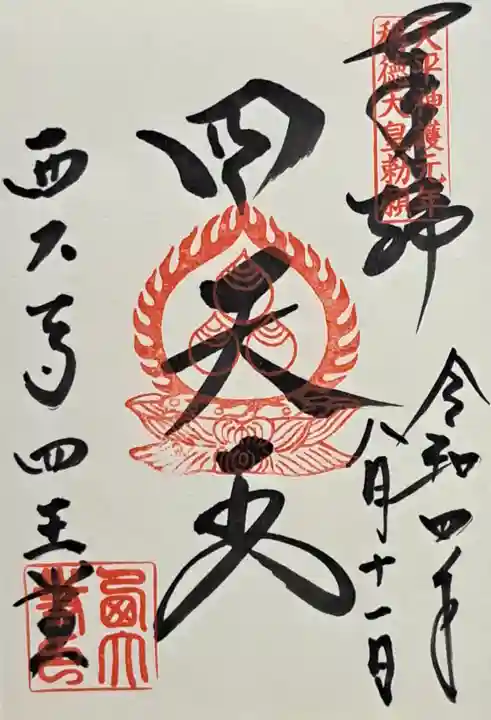 奉拝
天平神護元年
称徳天皇勅願
令和四年
八月十一日
四天王
西大寺 四王堂